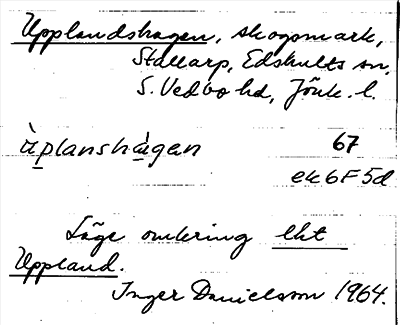 Upplandshagen, skogsmark,
Stallarp, Edshults sn,
S. Vedbo hd, Jönk. l.
ùplanshàgen 67
ek 6F 5d
Läge omkring lht
Uppland.
Inger Danielsson 1964.